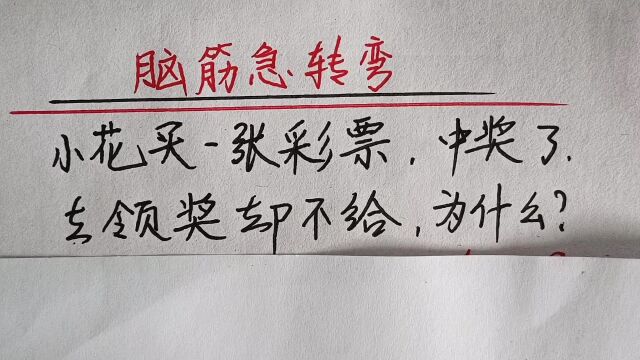 脑筋急转弯
小花买一张彩票,中奖了.
去领奖却不给,为什么?